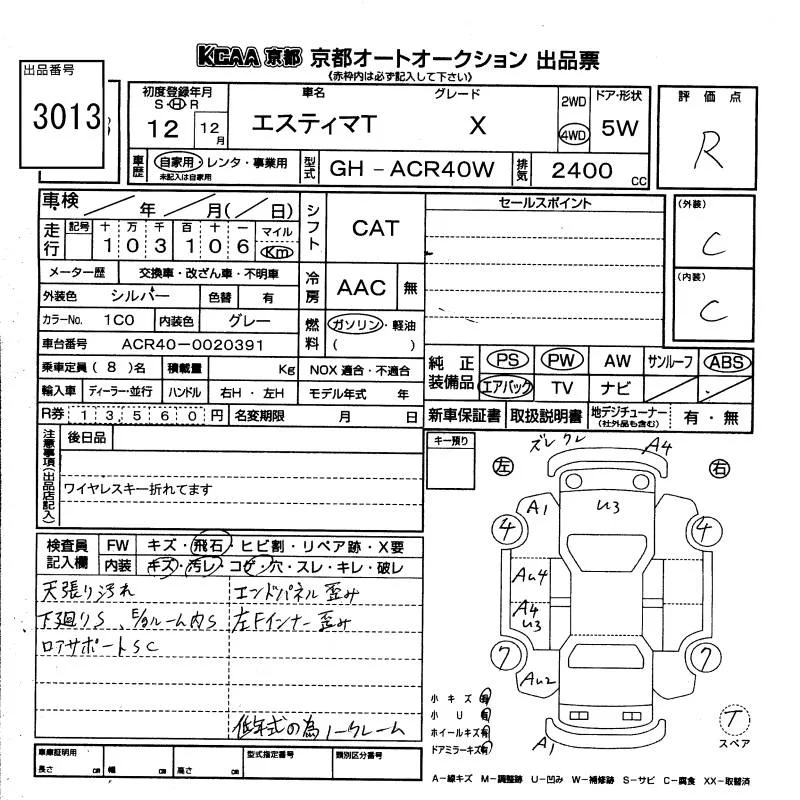 KCAA 京都 京都オートオークション 出品票
《赤枠内は必ず記入して下さい》
出品番号
3013
初度登録年月 車名 グレード 2WD ドア・形状 評価点
S・H・R
12 12月 エスティマT X 4WD 5W R
車歴 自家用・レンタ・事業用 型式 GH－ACR40W 排気 2400 cc
未記入は自家用
車検 / 年 / 月( / 日) シフト CAT セールスポイント (外装)
走行 記号 十 万 千 百 十 一 マイル
1 0 3 1 0 6 Km C
メーター歴 交換車・改ざん車・不明車 冷房 AAC 無 (内装)
外装色 シルバー 色替 有 C
カラーNo. 1C0 内装色 グレー 燃料 ガソリン・軽油
車台番号 ACR40－0020391 ( )
乗車定員 ( 8 ) 名 積載量 Kg NOX 適合・不適合 純正装備品 PS PW AW サンルーフ ABS
輸入車 ディーラー・並行 ハンドル 右H・左H モデル年式 年 エアバック TV ナビ
R券 13560円 名変期限 月 日 新車保証書 取扱説明書 地デジチューナー 有・無
(社外品も含む)
注意事項(出品店記入) 後日品 キー預り
ワイヤレスキー折れてます
検査員記入欄 FW キズ・飛石・ヒビ割・リペア跡・X要
内装 キズ・汚レ・コゲ・穴・スレ・キレ・破レ
天張り汚れ エンドパネル歪み
下廻りS、E/gルーム内S 左Fインナー歪み
ロアサポートSC
低年式の為ノークレーム
ズレ クレ A4
左 右
A1 U3
4 4
AU4
A4
U3
7 7
AU2
A1
小キズ有
小U有
ホイールキズ有
ドアミラーキズ有
T
スペア
車庫証明用 型式指定番号 類別区分番号
長さ cm 幅 cm 高さ cm
A－線キズ M－調整跡 U－凹み W－補修跡 S－サビ C－腐食 XX－取替済